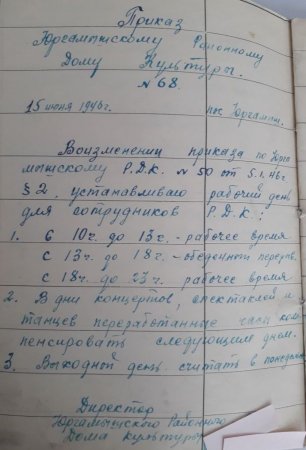 Приказ
Юргамышскому Районному
Дому Культуры.
№ 68.
15 июня 1946г. пк. Юргамыш.
Воизменении приказа по Юрга
мышскому Р.Д.К. № 50 от 5.1.46г
§ 2. устанавливаю рабочий день
для сотрудников Р.Д.К.:
1. С 10ч. до 13ч. - рабочее время
с 13ч. до 18ч. - обеденный перерыв.
с 18ч. до 23ч. рабочее время
2. В дни концертов, спектаклей и
танцев переработанные часы ком
пенсировать следующим днем.
3. Выходной день считать в
Директор
Юргамышского Районного
Дома культуры